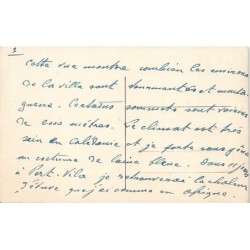 3
Cette vue montre combien les environs
de la ville sont tourmentés et monta
gneux. Certains sommets sont voisins
de 2000 mètres. Le climat est très
sain en Calédonie et je porte
un costume de laine bleue. Dans 11 jours
à Port-Vila je retrouverai la chaleur
d'étuve que j'ai connue en Afrique.